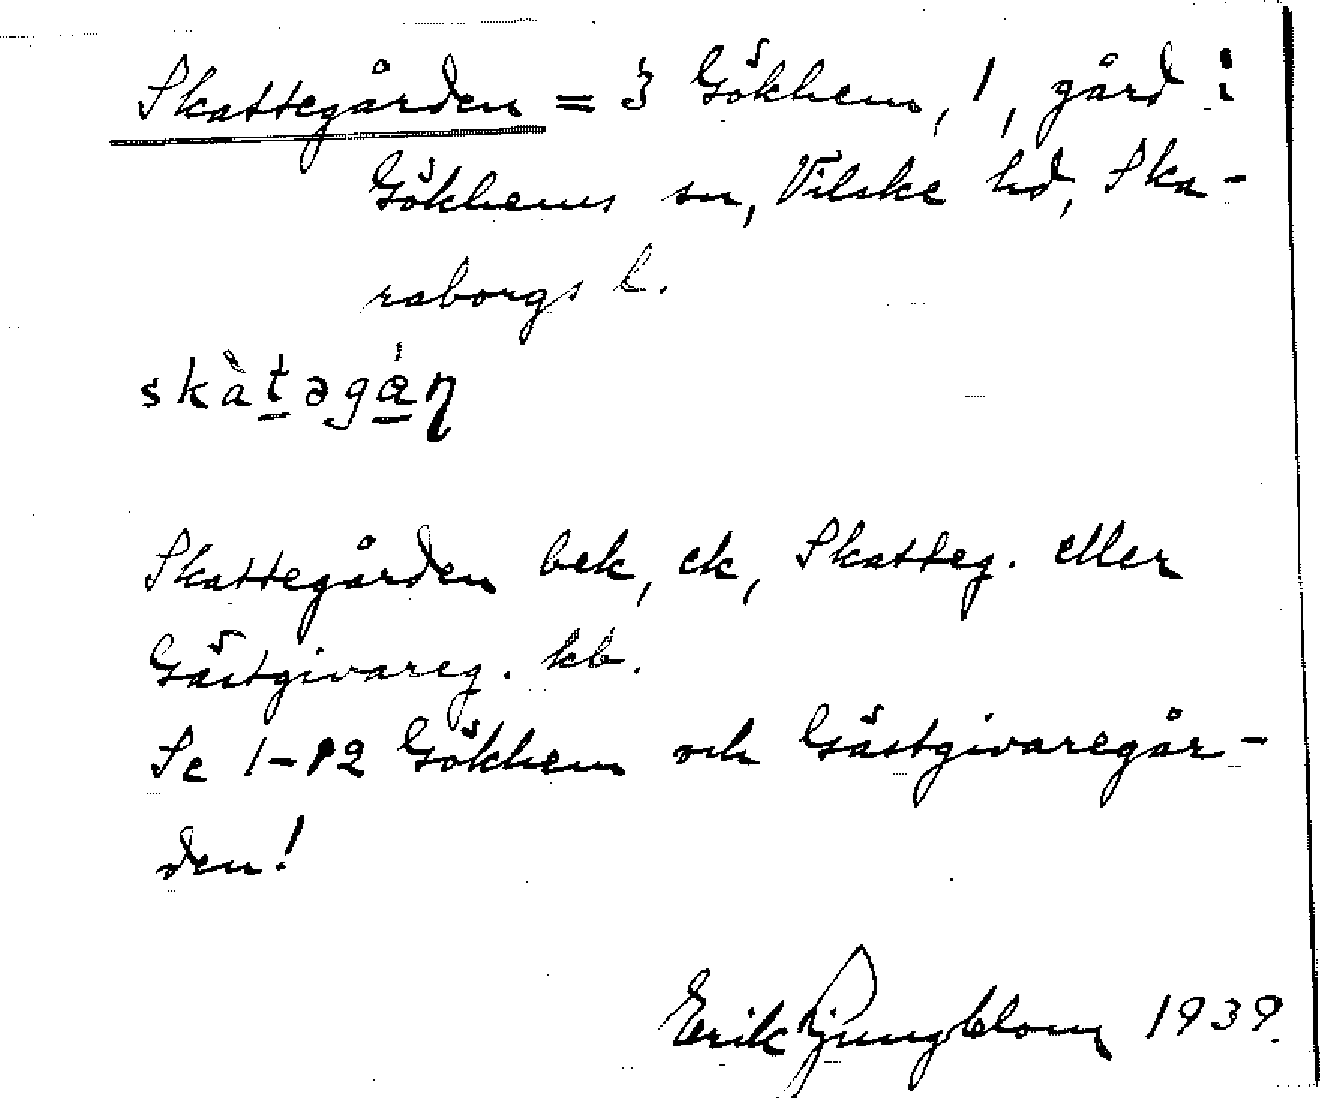 Skattegården = 3 Gökhem, 1, gård i
Gökhems sn, Vilske hd, Ska-
raborgs l.
skàtəgán
Skattegården bek, ek, Skatteg. eller
Gästgivareg. kb.
Se 1-12 Gökhem och Gästgivaregår-
den!
Erik Ljungblom 1939